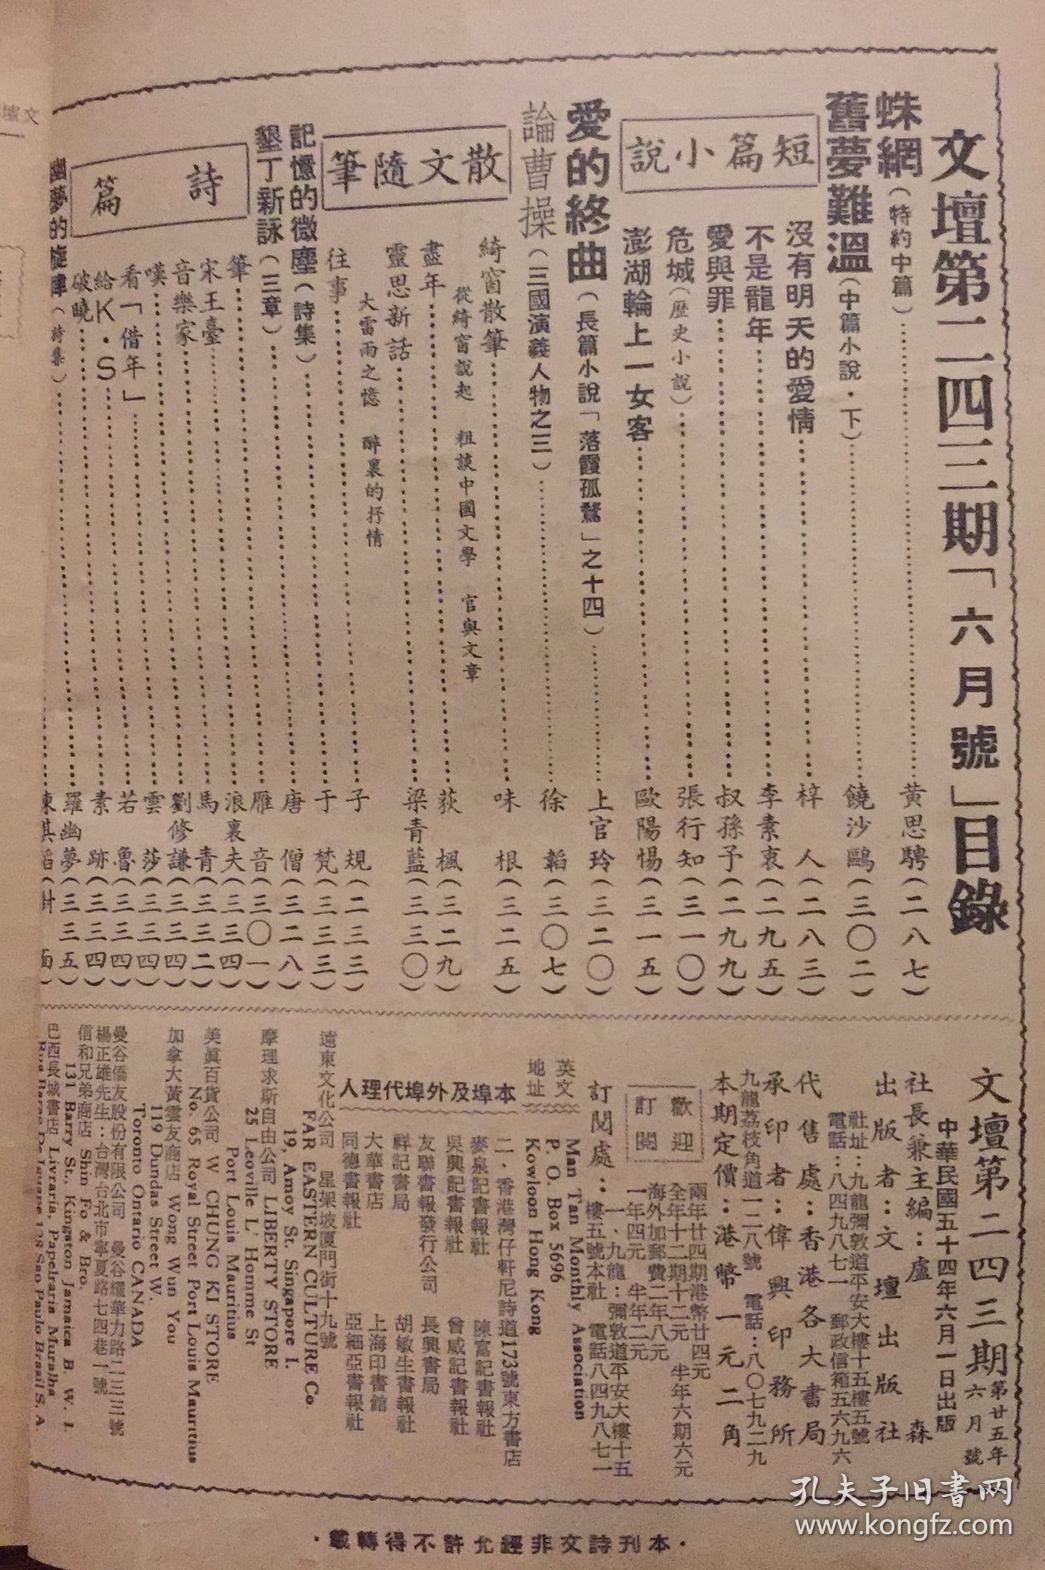 文壇第二四三期「六月號」目錄
蛛網(特約中篇)……黃思騁(二八七)
舊夢難溫(中篇小說·下)……饒沙鷗(三〇二)
短篇小說
沒有明天的愛情……梓人(二八三)
不是龍年……李素衷(二九五)
愛與罪……叔孫予(二九九)
危城(歷史小說)……張行知(三一〇)
澎湖輪上一女客……歐陽惕(三一五)
愛的終曲(長篇小說「落霞孤鶩」之十四)……上官玲(三二〇)
論曹操(三國演義人物之三)……徐韜(三〇七)
散文隨筆
綺窗散筆……味根(三二五)
從綺窗說起 粗談中國文學 官與文章
盡年……荻楓(三二九)
靈思新話……梁青藍(三三〇)
大雷雨之憶 醉裏的抒情
往事……子規(二三三)
記憶的微塵(詩集)……于梵(三三三)
墾丁新詠(三章)……唐僧(三二八)
詩篇
筆……雁音(三〇一)
宋王臺……浪裏夫(三三四)
音樂家……馬青(三三二)
嘆……劉修謙(三三四)
看「借年」……雲莎(三三四)
給K·S……若魯(三三四)
破曉……素跡(三三四)
幽夢的旋律(詩集)……羅幽夢(三三五)
文壇第二四三期 第廿五年六月號
中華民國五十四年六月一日出版
社長兼主編:盧森
出版者:文壇出版社
社址:九龍彌敦道平安大樓十五樓五號
電話:八四九八七一 郵政信箱五六九六
代售處:香港各大書局
承印者:偉興印務所
九龍荔枝角道一二八號 電話:八〇七九二九
本期定價:港幣一元二角
歡迎訂閱
兩年廿四期港幣廿四元
全年十二期十二元 半年六期六元
海外加郵費二年八元
一年四元 半年二元
訂閱處:一、九龍:彌敦道平安大樓十五樓五號本社 電話八四九八七一
英文地址
Man Tan Monthly Association
P. O. Box 5696
Kowloon Hong Kong
二、香港灣仔軒尼詩道173號東方書店
本埠及外埠代理人
麥泉記書報社 陳富記書報社
吳興記書報社 曾威記書報社
友聯書報發行公司 長興書局
祥記書局 胡敏生書報社
大華書店 上海印書館
同德書報社 亞細亞書報社
遠東文化公司 星架坡厦門街十九號
FAR EASTERN CULTURE Co
19, Amoy St. Singapore 1.
摩理求斯自由公司 LIBERTY STORE
25 Leoville L' Homme St
Port Louis Mauritius
美眞百貨公司 W CHUNG KI STORE
No. 65 Royal Street Port Louis Mauritius
加拿大黃雲友商店 Wong Wun You
119 Dundas Street W.
Toronto Ontario CANADA
曼谷僑友股份有限公司 曼谷耀華力路二三三號
楊正雄先生:台灣台北市寧夏路七四巷一號
信和兄弟商店 Shin Fo & Bro.
131 Barry St., Kingston Jamaica B. W. I.
巴西長城書店 Livraria, Papelraria Muralha
·本刊詩文非經允許不得轉載·
孔夫子旧书网
www.kongfz.com